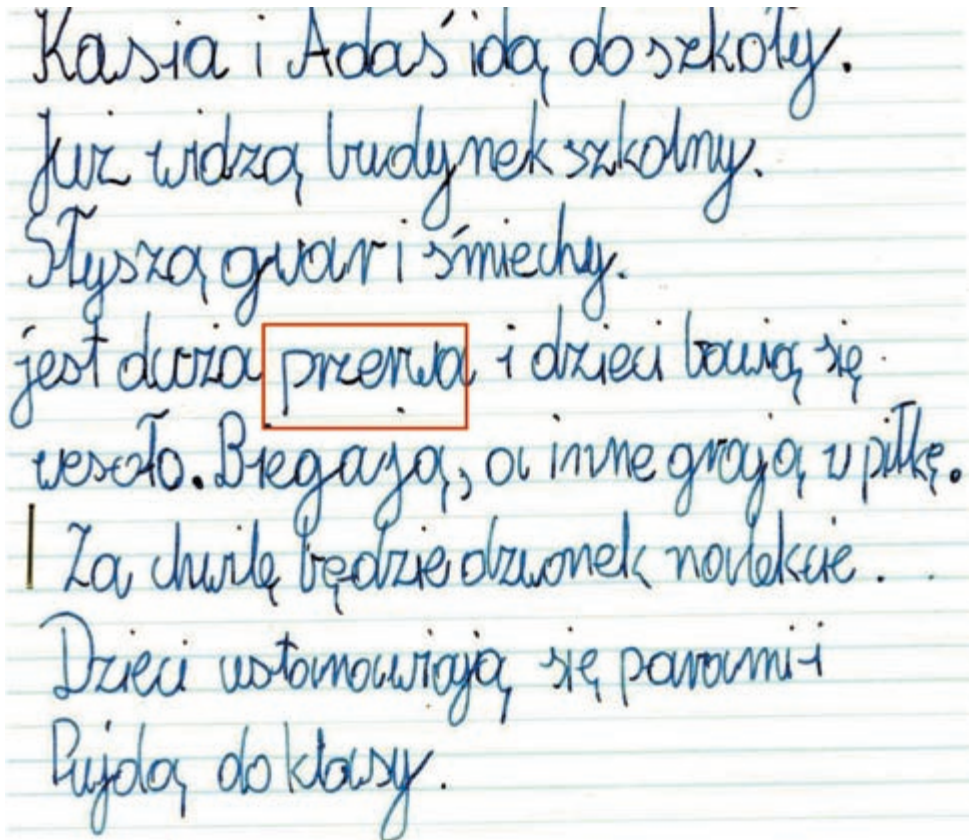 Kasia i Adaś idą do szkoły.
Już widzą budynek szkolny.
Słyszą gwar i śmiechy.
jest duża przerwa i dzieci bawią się
wesoło. Biegają, a inne grają w piłkę.
Za chwilę będzie dzwonek na lekcie.
Dzieci ustanawiają się parami i
Pujdą do klasy.